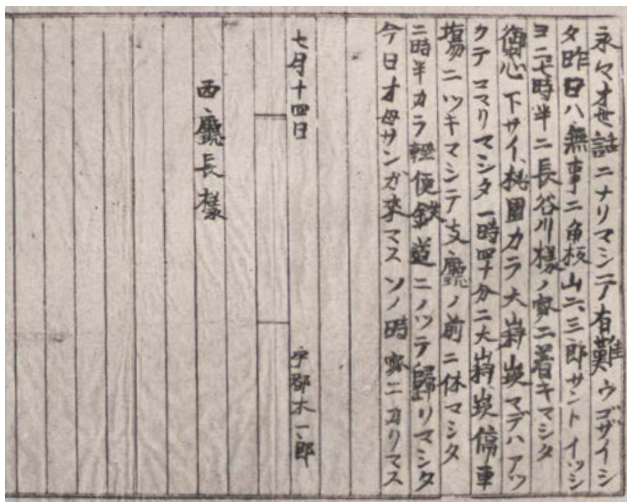 永々オ世話ニナリマシテ有難ウゴザイシ
タ昨日ハ無事ニ角板山二、三郎サントイッシ
ヨニ七時半ニ長谷川様ノ家ニ着キマシタ
御心下サイ、桃園カラ大嵙崁マデハアツ
クテコマリマシタ一時四十分ニ大嵙崁停車
場ニツキマシテ支廳ノ前ニ休マシタ
二時半カラ輕便鉄道ニノツテ歸リマシタ
今日オ母サンガ来マスソノ時家ニカリマス
七月十四日 宇都木一郎
西廳長様